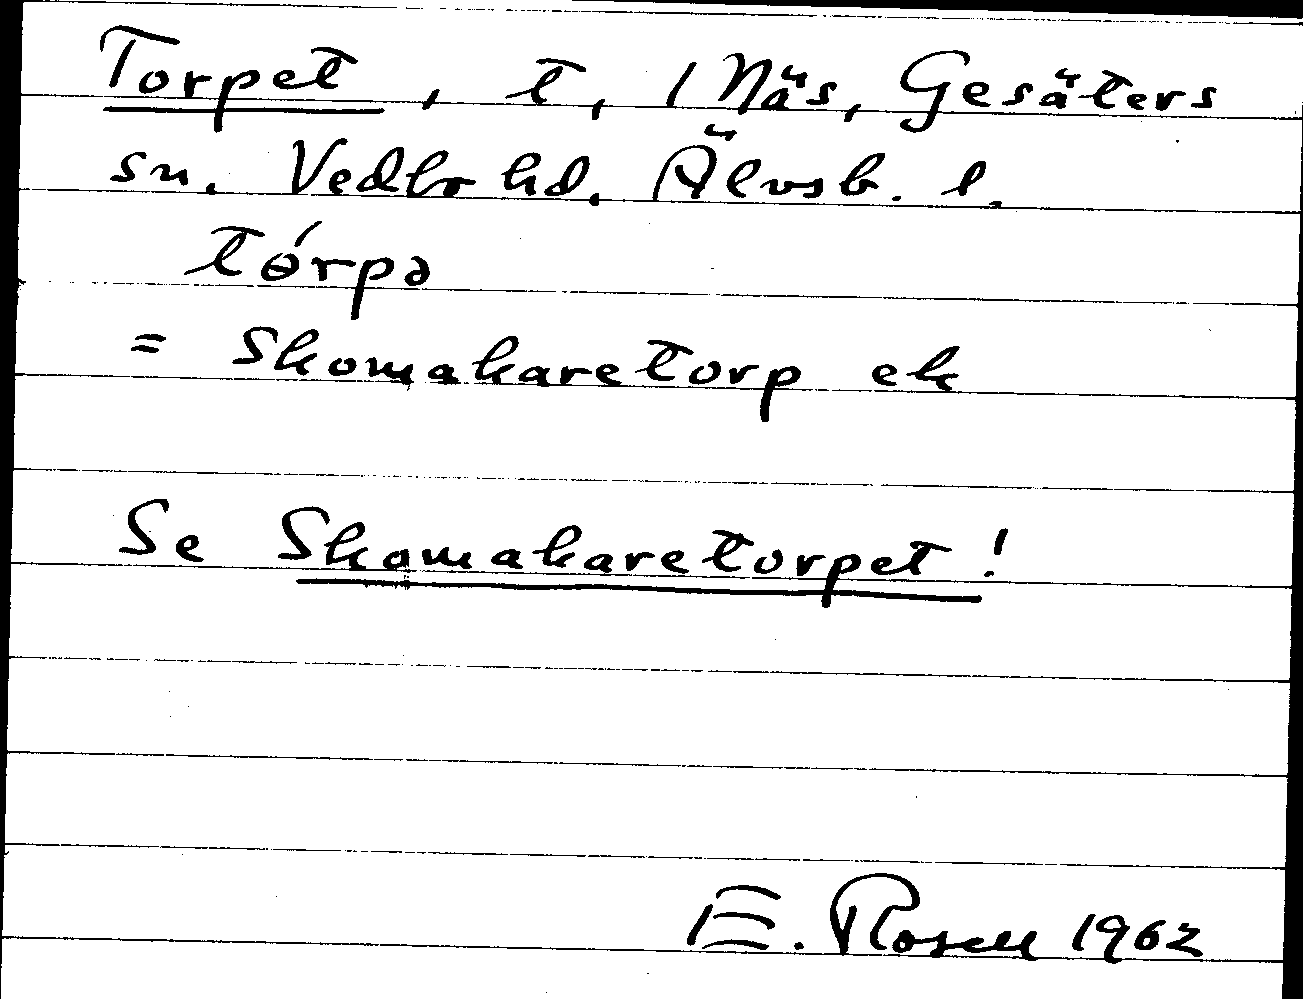 Torpet, t, 1 Näs, Gesäters
sn. Vedbo hd. Älvsb. l.
tɵ́rpə
= Skomakaretorp ek
Se Skomakaretorpet!
E. Rosell 1962